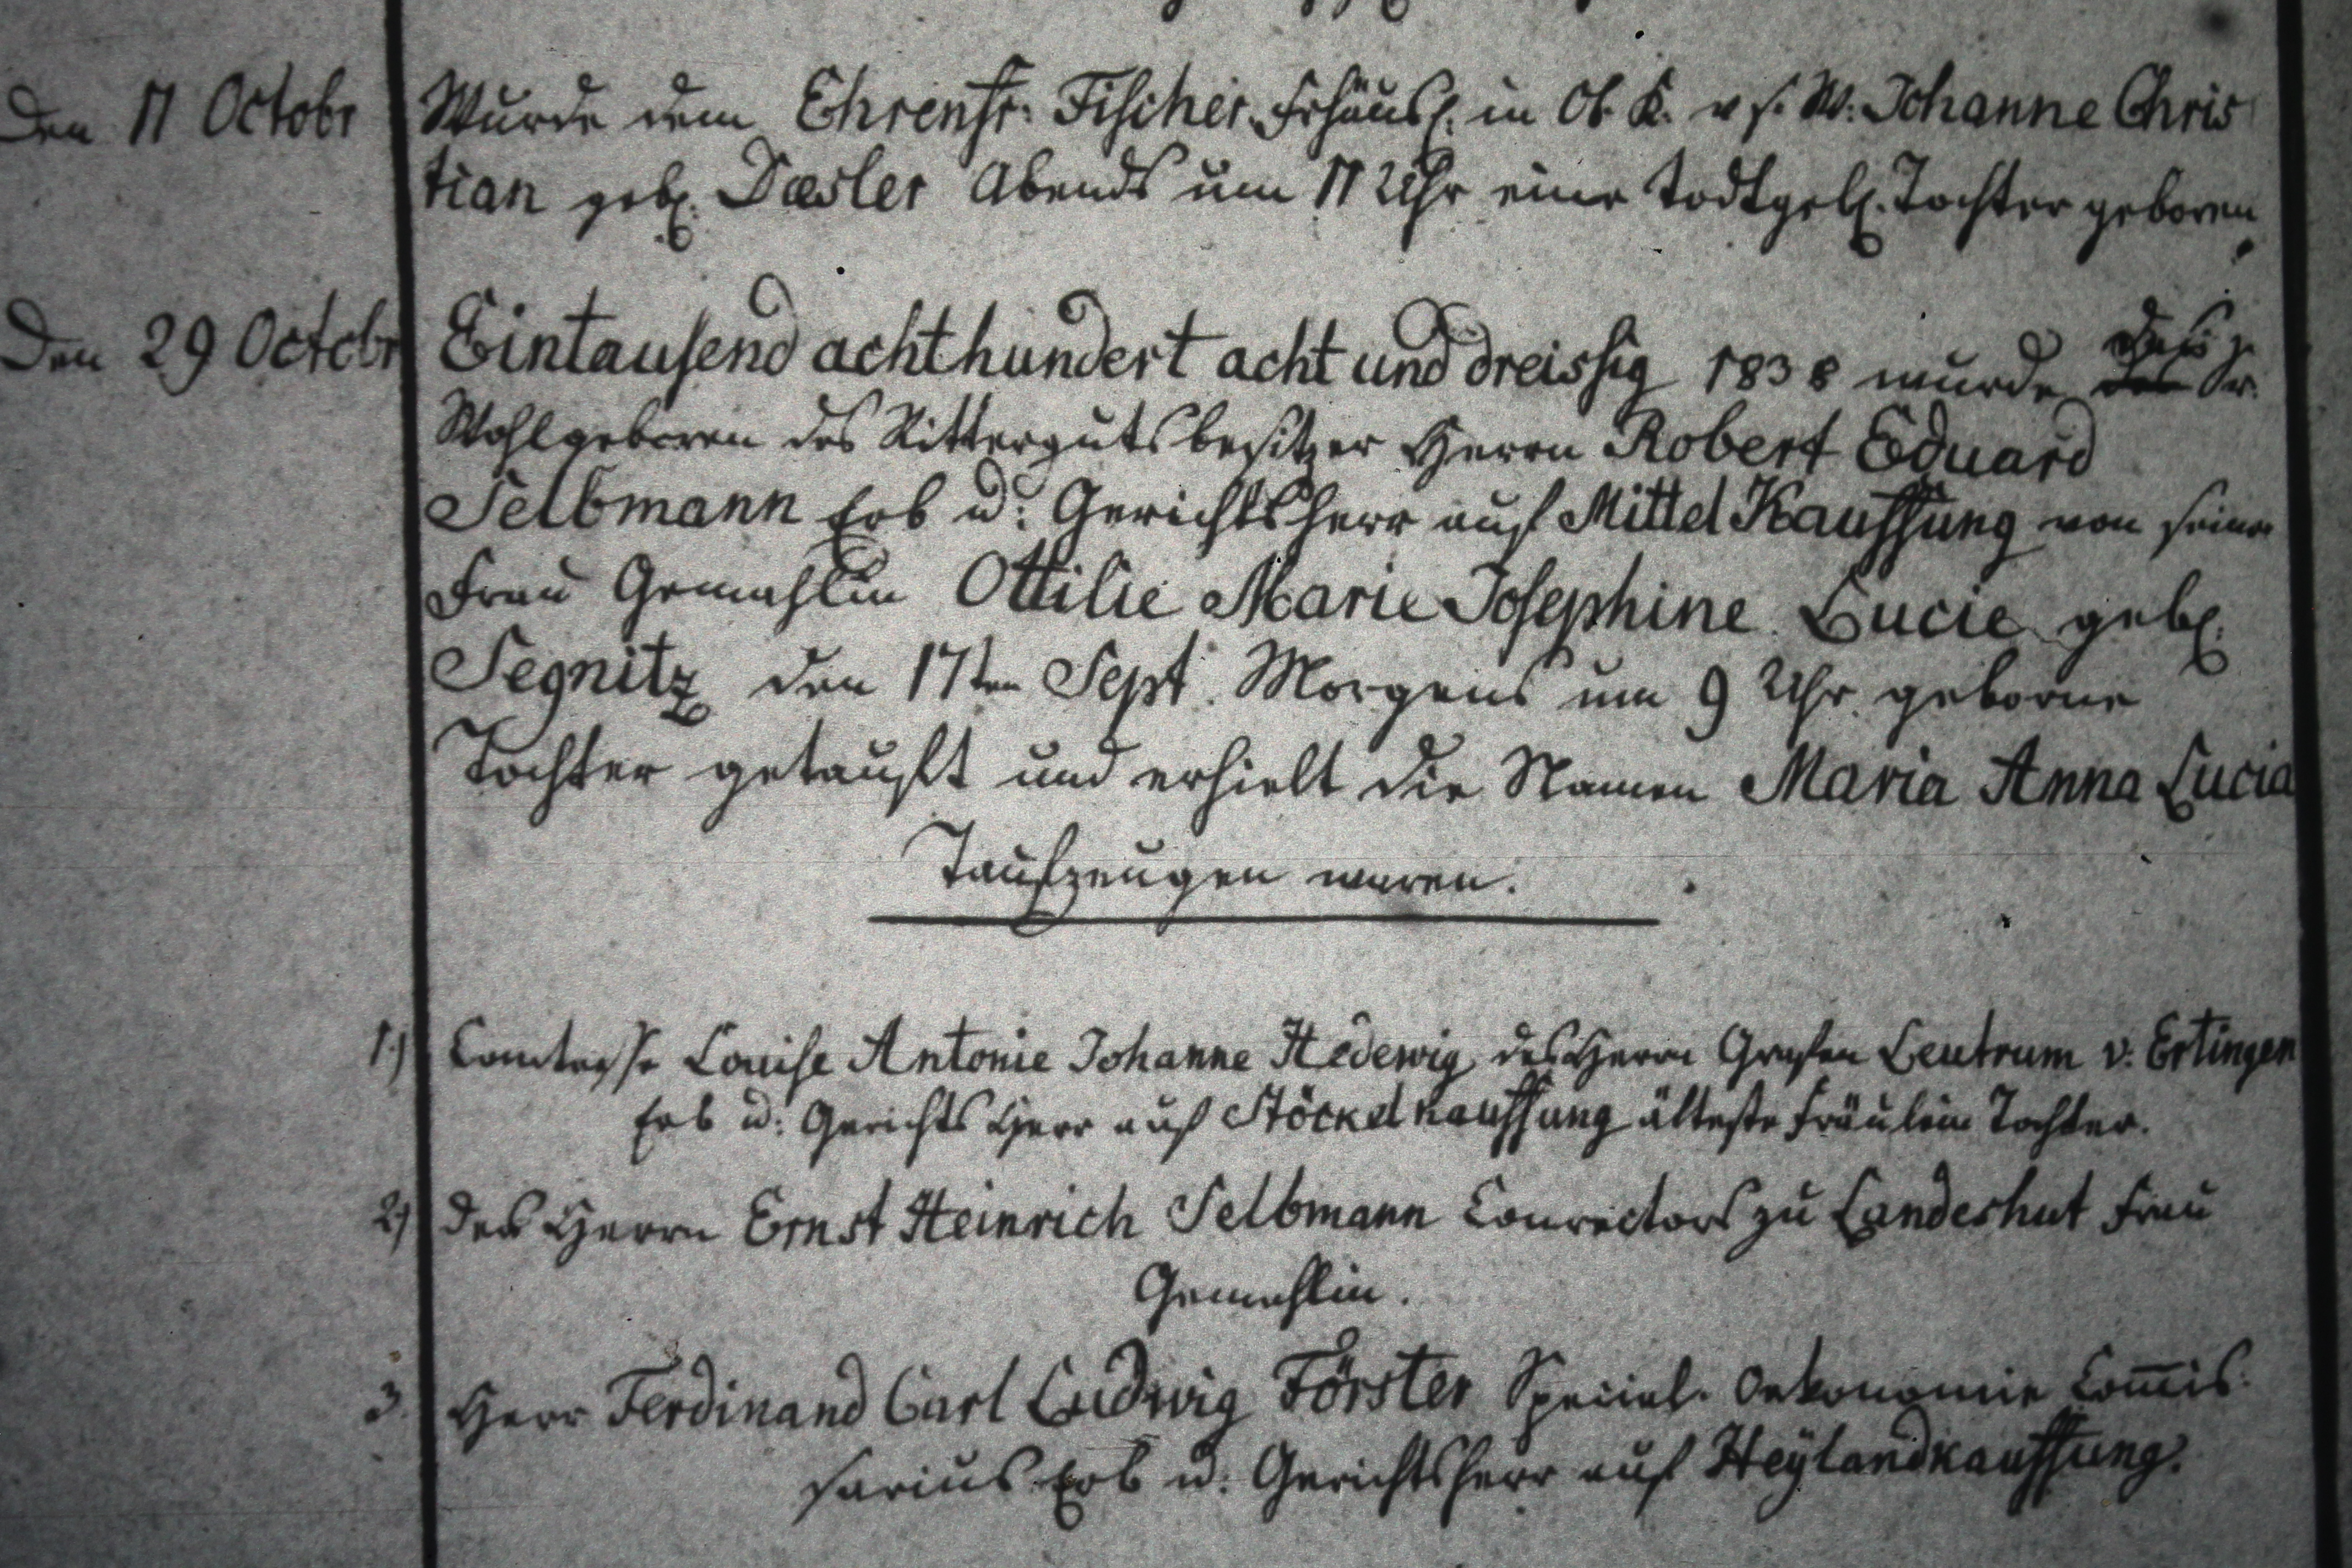 Den 11 Octobr
Wurde dem Ehrenfr: Fischer Frhäusl. in Ob. K. v s. W. Johanne Chris
tian geb. Dæsler Abends um 11 Uhr eine todtgeb. Tochter geboren
Den 29 Octobr
Eintausend achthundert acht und dreissig 1838 wurde Sr.
Wohlgeboren des Ritterguts besitzer Herrn Robert Eduard
Selbmann Erb u: Gerichtsherr auf Mittel Kauffung von seiner
Frau Gemahlin Ottilie Marie Josephine Lucie geb.
Segnitz den 17ten Sept. Morgens um 9 Uhr geborne
Tochter getauft und erhielt die Namen Maria Anna Lucia
Taufzeugen waren.
1.) Comtesse Louise Antonie Johanne Hedewig des Herrn Grafen Leutrum v. Ertingen
Erb u: Gerichts Herr auf Stöckel kauffung älteste Fräulein Tochter.
2) des Herrn Ernst Heinrich Selbmann Conrectors zu Landeshut Frau
Gemahlin.
3. Herr Ferdinand Carl Ludwig Förster Special. Oekonomie Com̅is.
sarius Erb u: Gerichtsherr auf Heylandkauffung.